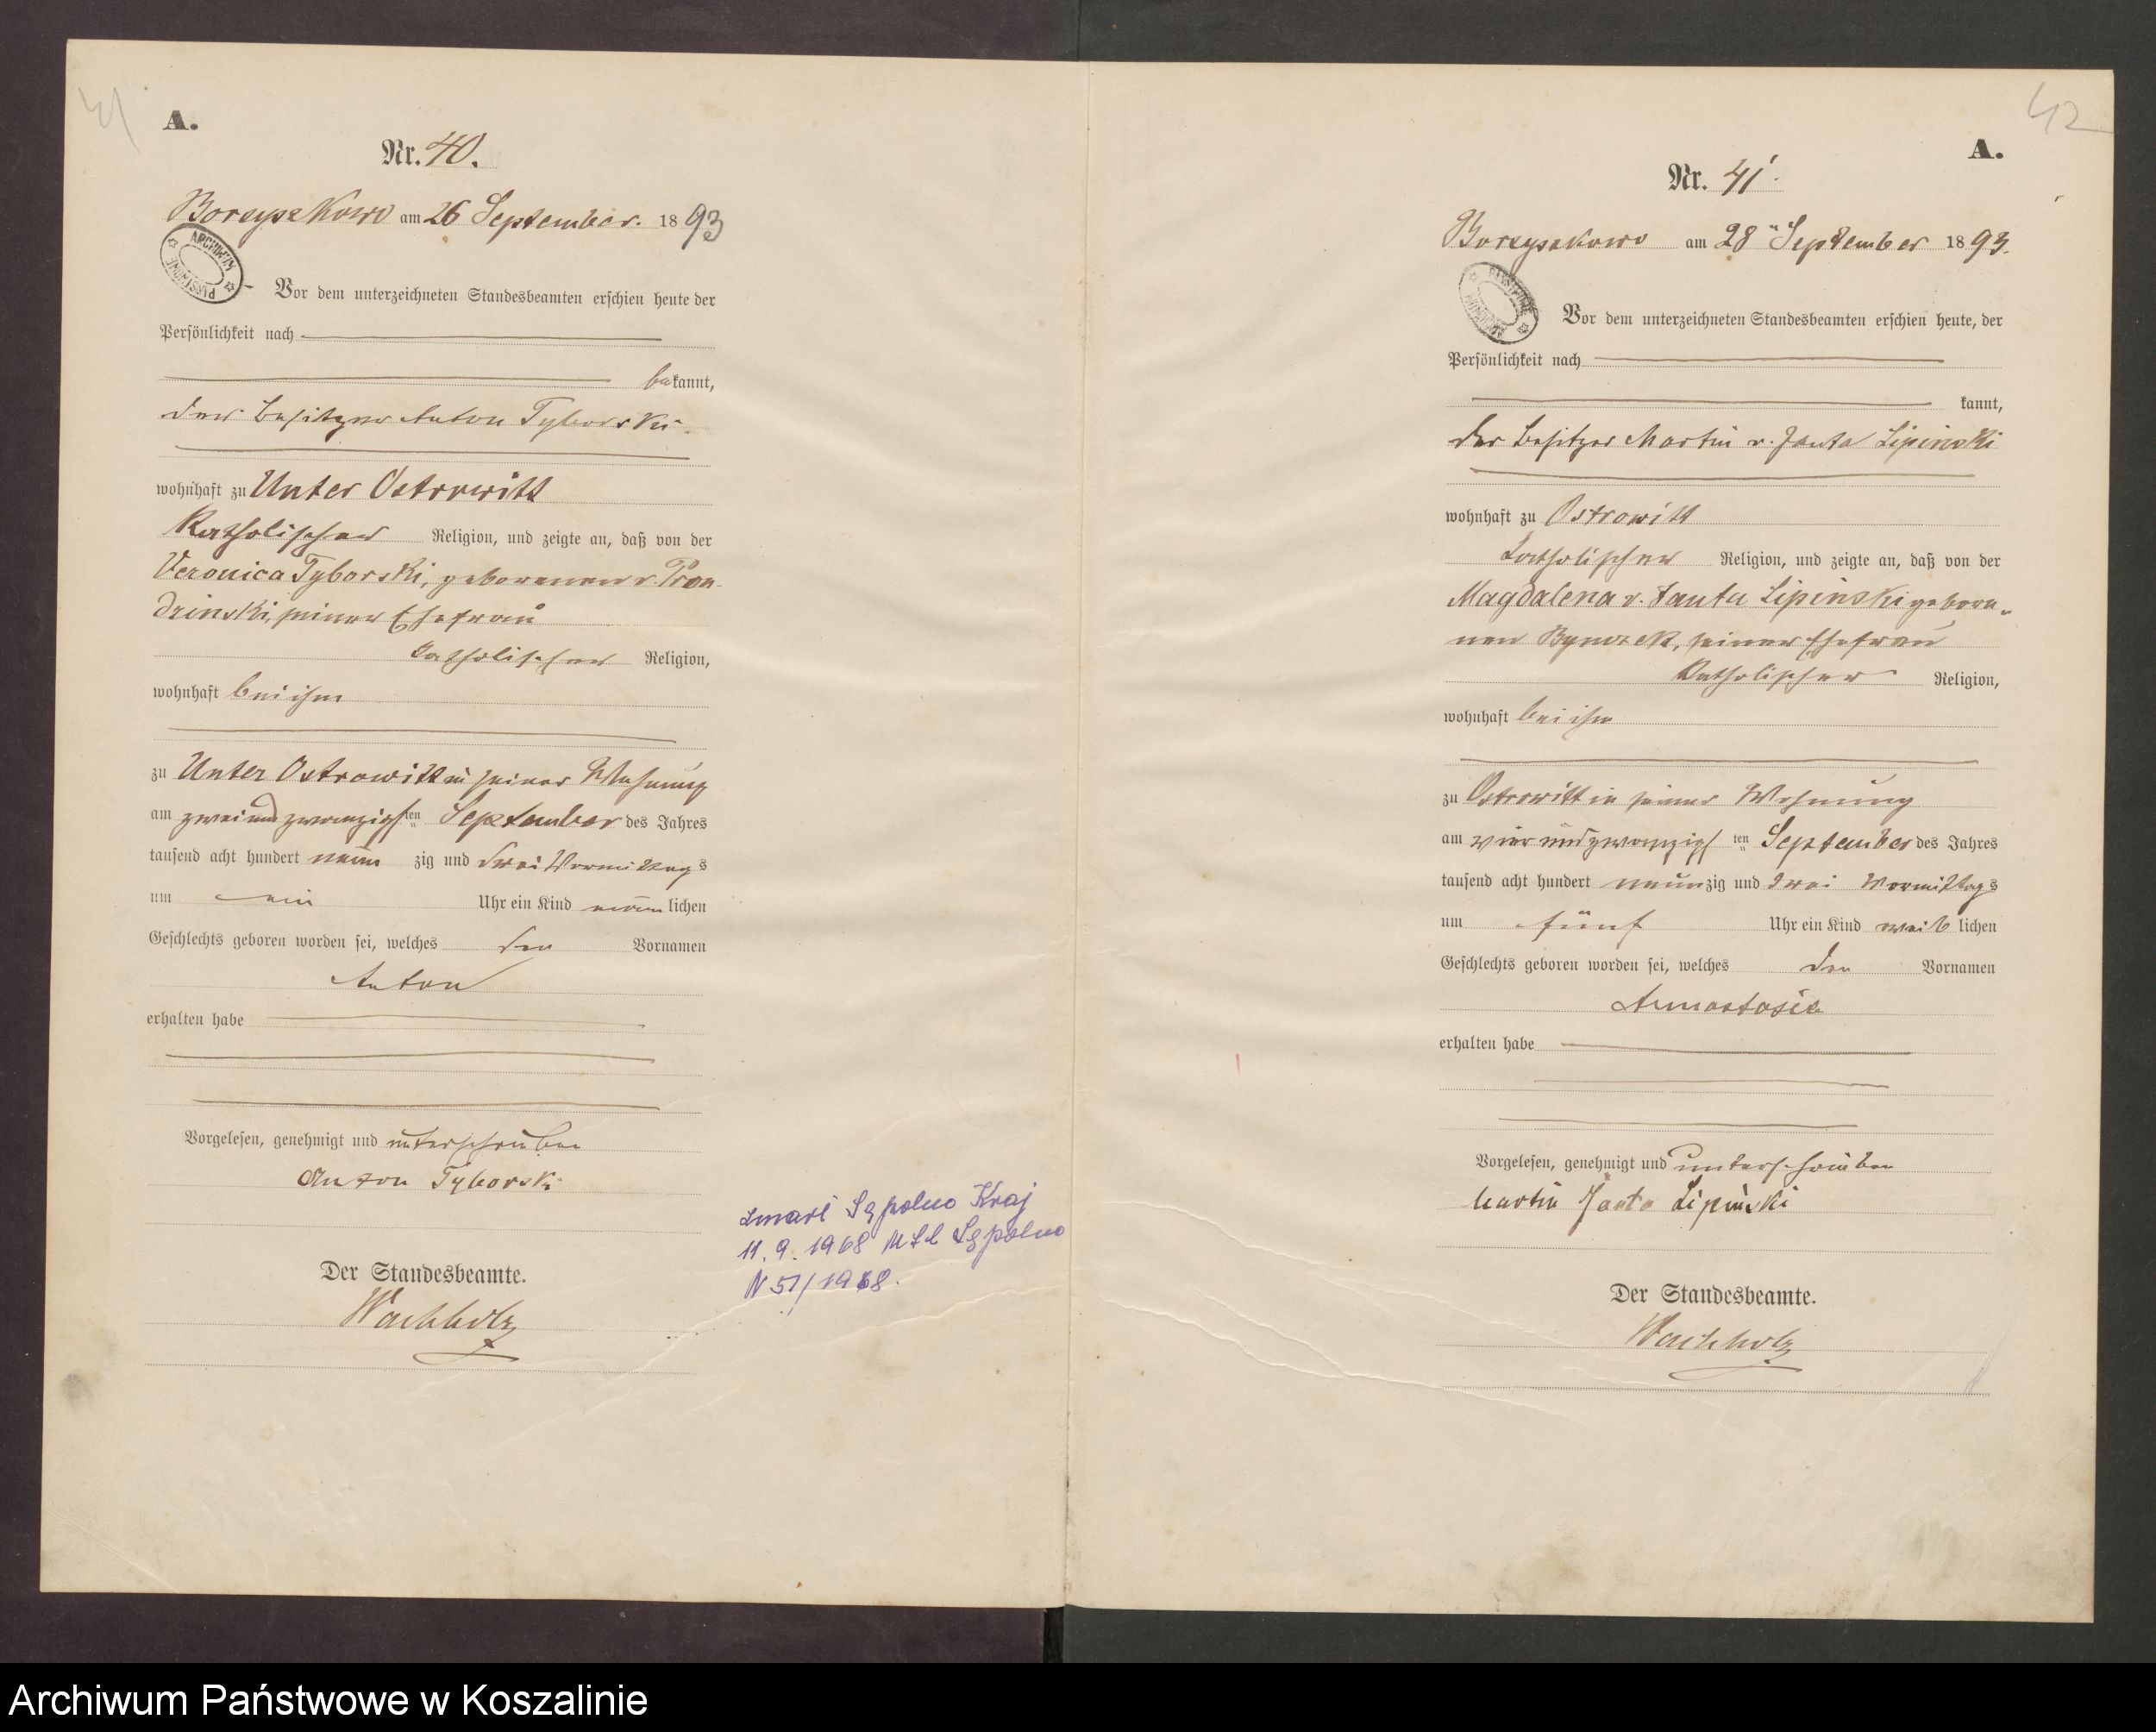 41
A.
Nr. 40.
Borzyszkowo am 26 September. 1893
ARCHIWUM PAŃSTWOWE
Vor dem unterzeichneten Standesbeamten erschien heute der
Persönlichkeit nach
bekannt,
der Besitzer Anton Tyborski
wohnhaft zu Unter Ostrowitt
katholischer Religion, und zeigte an, daß von der
Veronica Tyborski, geborenen v. Pron-
dzinski, seiner Ehefrau
katholischer Religion,
wohnhaft bei ihm
zu Unter Ostrowitt in seiner Wohnung
am zweiundzwanzigsten September des Jahres
tausend acht hundert neunzig und drei Vormittags
um ein Uhr ein Kind männlichen
Geschlechts geboren worden sei, welches den Vornamen
Anton
erhalten habe
Vorgelesen, genehmigt und unterschrieben
Anton Tyborski
Der Standesbeamte.
Wachholz
zmarł Sępolno Kraj
11.9.1968 USC Sępolno
N 51/1968.
42
A.
Nr. 41.
Borzyszkowo am 28 September 1893.
Vor dem unterzeichneten Standesbeamten erschien heute, der
Persönlichkeit nach
kannt,
der Besitzer Martin v. Janta Lipinski
wohnhaft zu Ostrowitt
katholischer Religion, und zeigte an, daß von der
Magdalena v. Janta Lipinski gebore-
nen seiner Ehefrau
katholischer Religion,
wohnhaft bei ihm
zu Ostrowitt in seiner Wohnung
am vierundzwanzigsten September des Jahres
tausend acht hundert neunzig und drei Vormittags
um fünf Uhr ein Kind weiblichen
Geschlechts geboren worden sei, welches den Vornamen
Annastasia
erhalten habe
Vorgelesen, genehmigt und unterschrieben
Martin Janta Lipinski
Der Standesbeamte.
Wachholz
Archiwum Państwowe w Koszalinie